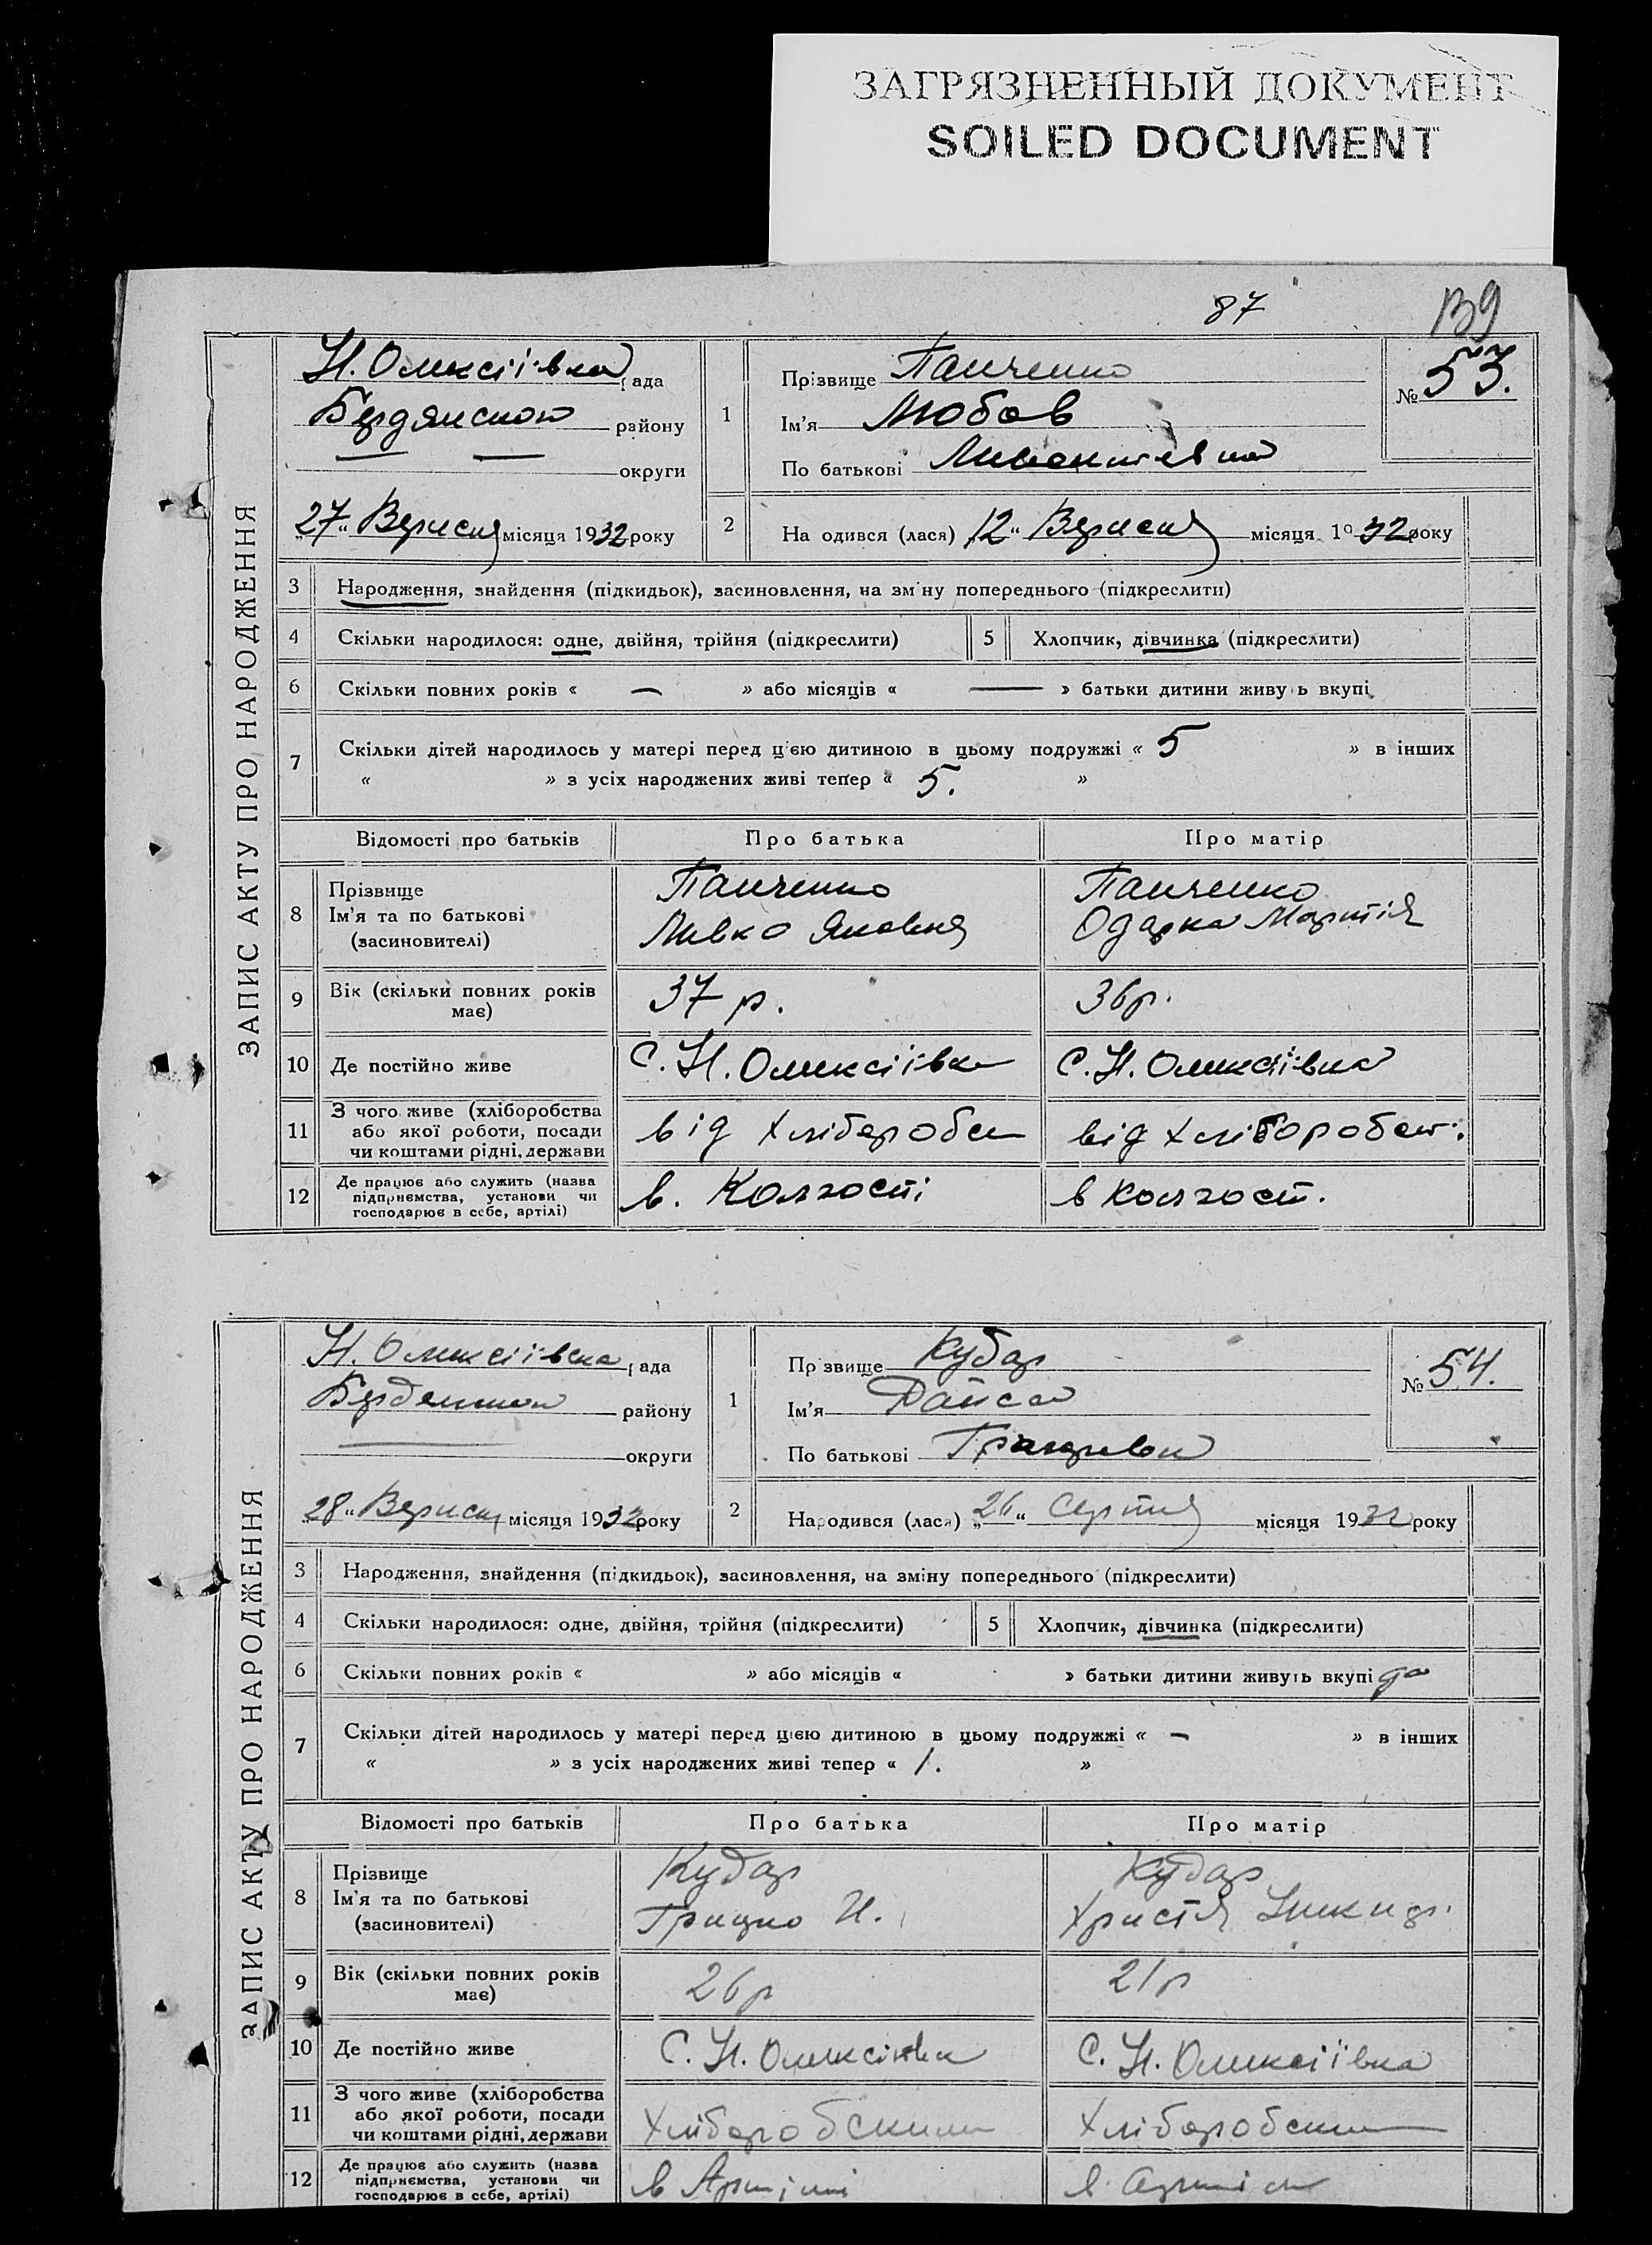 ЗАГРЯЗНЕННЫЙ ДОКУМЕНТ
SOILED DOCUMENT
87
139
ЗАПИС АКТУ ПРО НАРОДЖЕННЯ
Н. Олексіївка рада
Бердянського району
округи
„27“ Вересня місяця 1932 року
1
Прізвище Панченко
Ім'я Любов
По батькові
№ 53.
2
На одився (лася) „12“ Вересня місяця 1932 року
3 Народження, знайдення (підкидьок), засиновлення, на зм ну попереднього (підкреслити)
4 Скільки народилося: одне, двійня, трійня (підкреслити) 5 Хлопчик, дівчинка (підкреслити)
6 Скільки повних років « — » або місяців « — » батьки дитини живу ь вкупі
7 Скільки дітей народилось у матері перед цією дитиною в цьому подружжі « 5 » в інших
« » з усіх народжених живі тепер « 5. »
Відомості про батьків Про батька Про матір
8 Прізвище Ім'я та по батькові (засиновителі)
Панченко
Левко Яковля
Панченко
Одарка Мартія
9 Вік (скільки повних років має) 37 р. 36 р.
10 Де постійно живе С. Н. Олексіївка С. Н. Олексіївка
11 З чого живе (хліборобства або якої роботи, посади чи коштами рідні, держави
від хлібороб від хлібороб
12 Де працює або служить (назва підприємства, установи чи господарює в себе, артілі)
в. Колгоспі в колгосп.
ЗАПИС АКТУ ПРО НАРОДЖЕННЯ
Н. Олексіївска рада
району
округи
„28“ Вересня місяця 1932 року
1
Пр звище Кубар
Ім'я Раиса
По батькові
№ 54.
2
Народився (лася) „26“ Серпня місяця 1932 року
3 Народження, знайдення (підкидьок), засиновлення, на зміну попереднього (підкреслити)
4 Скільки народилося: одне, двійня, трійня (підкреслити) 5 Хлопчик, дівчинка (підкреслити)
6 Скільки повних років « » або місяців « » батьки дитини живуть вкупі да
7 Скільки дітей народилось у матері перед цією дитиною в цьому подружжі « — » в інших
« » з усіх народжених живі тепер « 1. »
Відомості про батьків Про батька Про матір
8 Прізвище Ім'я та по батькові (засиновителі)
Кубар
Грицко Н.
Кубар
Христя Никиф.
9 Вік (скільки повних років має) 26 р 21 р
10 Де постійно живе С. Н. Олексіівка С. Н. Олексіївка
11 З чого живе (хліборобства або якої роботи, посади чи коштами рідні, держави
Хліборобским Хліборобским
12 Де працює або служить (назва підприємства, установи чи господарює в себе, артілі)
в Артілі в артілі